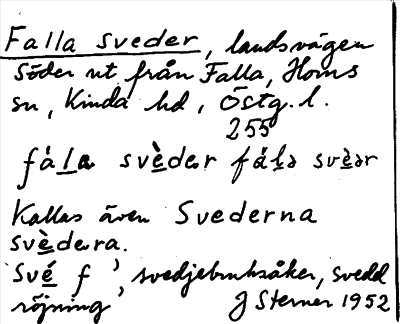 Falla sveder, landsvägen
söder ut från Falla, Horns
sn, Kinda hd, Östg. l.
255
fàḻa svèdar fáḻə svèər
Kallas även Svederna
svèdeṛa.
Své f ’, svedjebruksåker, svedd
röjning’ J Sterner 1952